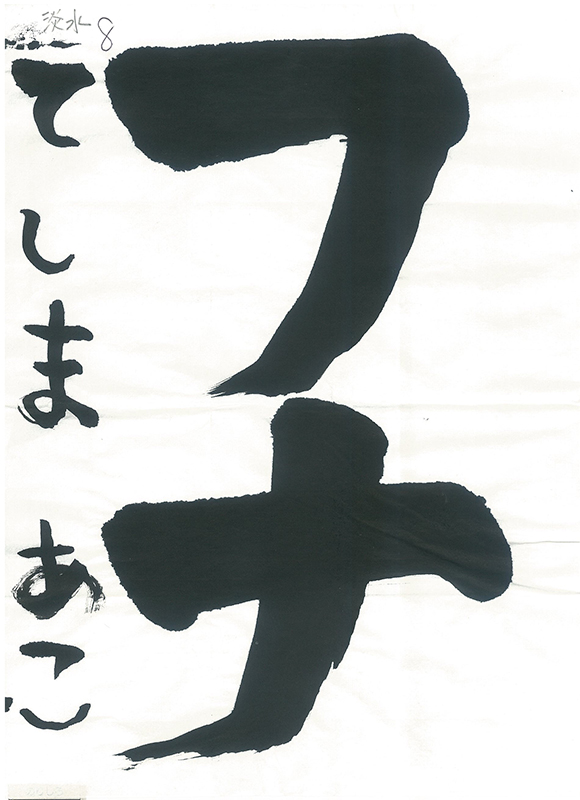 淡水 8
フナ
てしま あこ